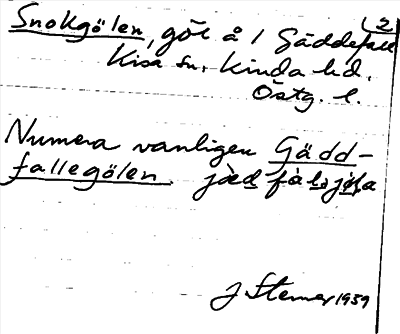 (2
Snokgölen, göl å 1 Gäddefall
Kisa sn. Kinda hd.
Östg. l.
Numera vanligen Gädd-
fallegölen.
J. Sterner 1959